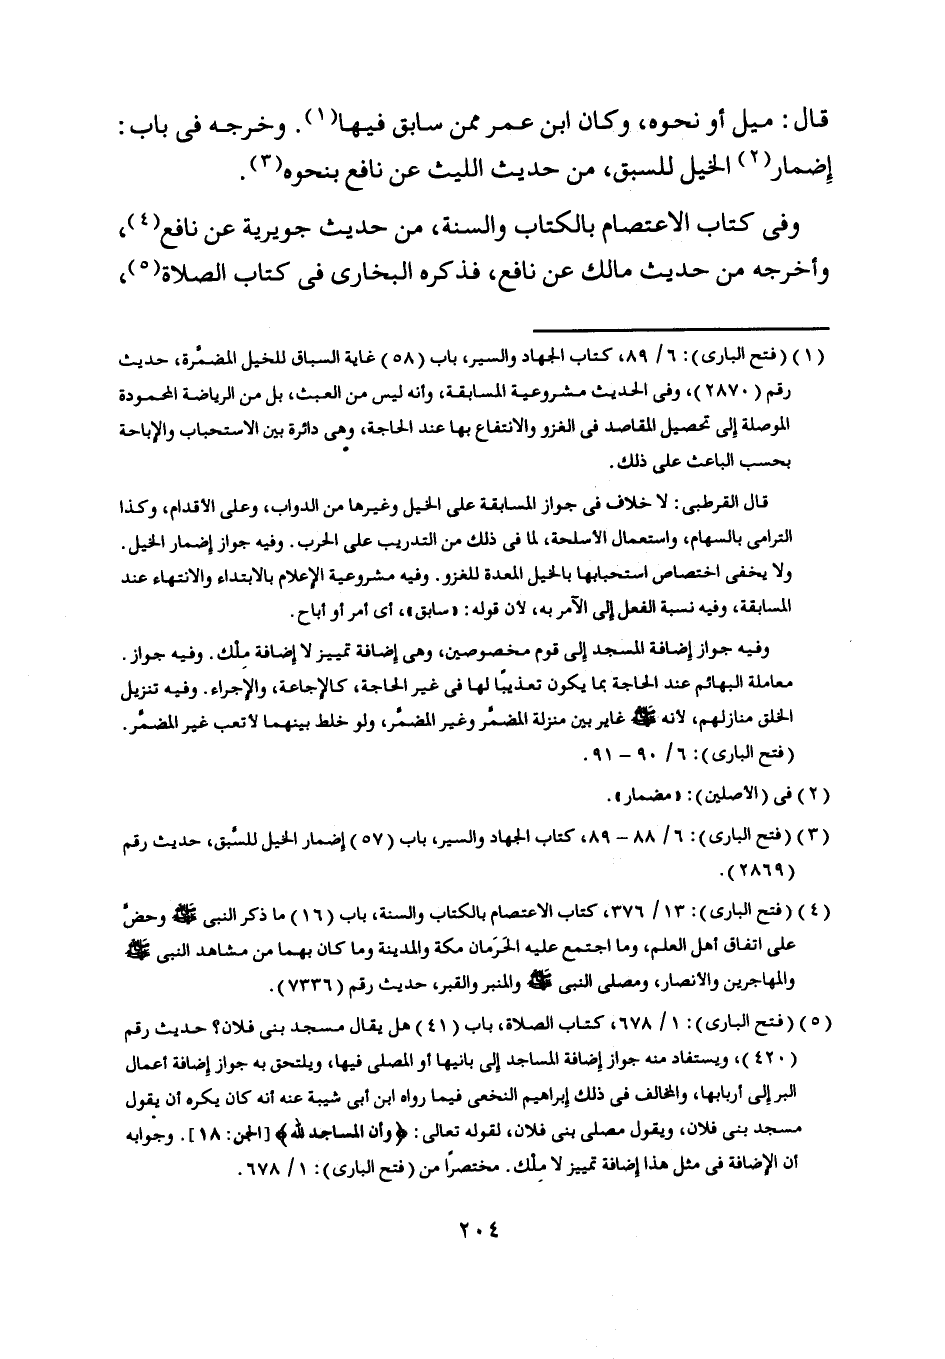 قال: ميل أو نحوه، وكان ابن عمر ممن سابق فيها(١). وخرجه فى باب:
إضمار(٢) الخيل للسبق، من حديث الليث عن نافع بنحوه(٣).
وفى كتاب الاعتصام بالكتاب والسنة، من حديث جويرية عن نافع(٤)،
وأخرجه من حديث مالك عن نافع، فذكره البخارى فى كتاب الصلاة(٥)،
(١) (فتح البارى): ٦/ ٨٩، كتاب الجهاد والسير، باب (٥٨) غاية السباق للخيل المضمَّرة، حديث
رقم (٢٨٧٠)، وفى الحديث مشروعية المسابقة، وأنه ليس من العبث، بل من الرياضة المحمودة
الموصلة إلى تحصيل المقاصد فى الغزو والانتفاع بها عند الحاجة، وهى دائرة بين الاستحباب والإباحة
بحسب الباعث على ذلك.
قال القرطبى: لا خلاف فى جواز المسابقة على الخيل وغيرها من الدواب، وعلى الأقدام، وكذا
الترامى بالسهام، واستعمال الأسلحة، لما فى ذلك من التدريب على الحرب. وفيه جواز إضمار الخيل.
ولا يخفى اختصاص استحبابها بالخيل المعدة للغزو. وفيه مشروعية الإعلام بالابتداء والانتهاء عند
المسابقة، وفيه نسبة الفعل إلى الآمر به، لأن قوله: «سابق»، أى أمر أو أباح.
وفيه جواز إضافة المسجد إلى قوم مخصوصين، وهى إضافة تمييز لا إضافة مِلْك. وفيه جواز.
معاملة البهائم عند الحاجة بما يكون تعذيبًا لها فى غير الحاجة، كالإجاعة، والإجراء. وفيه تنزيل
الخلق منازلهم، لأنه ﷺ غاير بين منزلة المضمَّر وغير المضمَّر، ولو خلط بينهما لأتعب غير المضمَّر.
(فتح البارى): ٦/ ٩٠ – ٩١.
(٢) فى (الأصلين): «مضمار».
(٣) (فتح البارى): ٦/ ٨٨ – ٨٩، كتاب الجهاد والسير، باب (٥٧) إضمار الخيل للسَّبق، حديث رقم
(٢٨٦٩).
(٤) (فتح البارى): ١٣/ ٣٧٦، كتاب الاعتصام بالكتاب والسنة، باب (١٦) ما ذكر النبى ﷺ وحضَّ
على اتفاق أهل العلم، وما اجتمع عليه الحَرَمان مكة والمدينة وما كان بهما من مشاهد النبى ﷺ
والمهاجرين والأنصار، ومصلى النبى ﷺ والمنبر والقبر، حديث رقم (٧٣٣٦).
(٥) (فتح البارى): ١/ ٦٧٨، كتاب الصلاة، باب (٤١) هل يقال مسجد بنى فلان؟ حديث رقم
(٤٢٠)، ويستفاد منه جواز إضافة المساجد إلى بانيها أو المصلى فيها، ويلتحق به جواز إضافة أعمال
البر إلى أربابها، والمخالف فى ذلك إبراهيم النخعى فيما رواه ابن أبى شيبة عنه أنه كان يكره أن يقول
مسجد بنى فلان، ويقول مصلى بنى فلان، لقوله تعالى: ﴿وأن المساجد لله﴾ [الجن: ١٨]. وجوابه
أن الإضافة فى مثل هذا إضافة تمييز لا مِلْك. مختصرًا من (فتح البارى): ١/ ٦٧٨.
٢٠٤